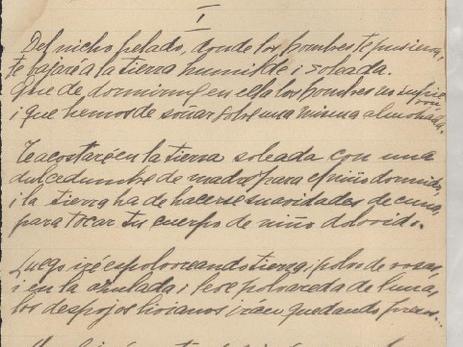 I
Del nicho helado, donde los hombres te pusieron,
te bajaré a la tierra humilde i soleada.
Que he de dormirme en ella los hombres no supieron,
i que hemos de soñar sobre una misma almohada.
Te acostaré en la tierra soleada con una
dulcedumbre de madre para el niño dormido,
i la tierra ha de hacerse suavidades de cuna,
para tocar tu cuerpo de niño dolorido.
Luego iré espolvoreando tierra i polvo de rosas,
i en la azulada i leve polvareda de luna,
los despojos livianos irán quedando presos...